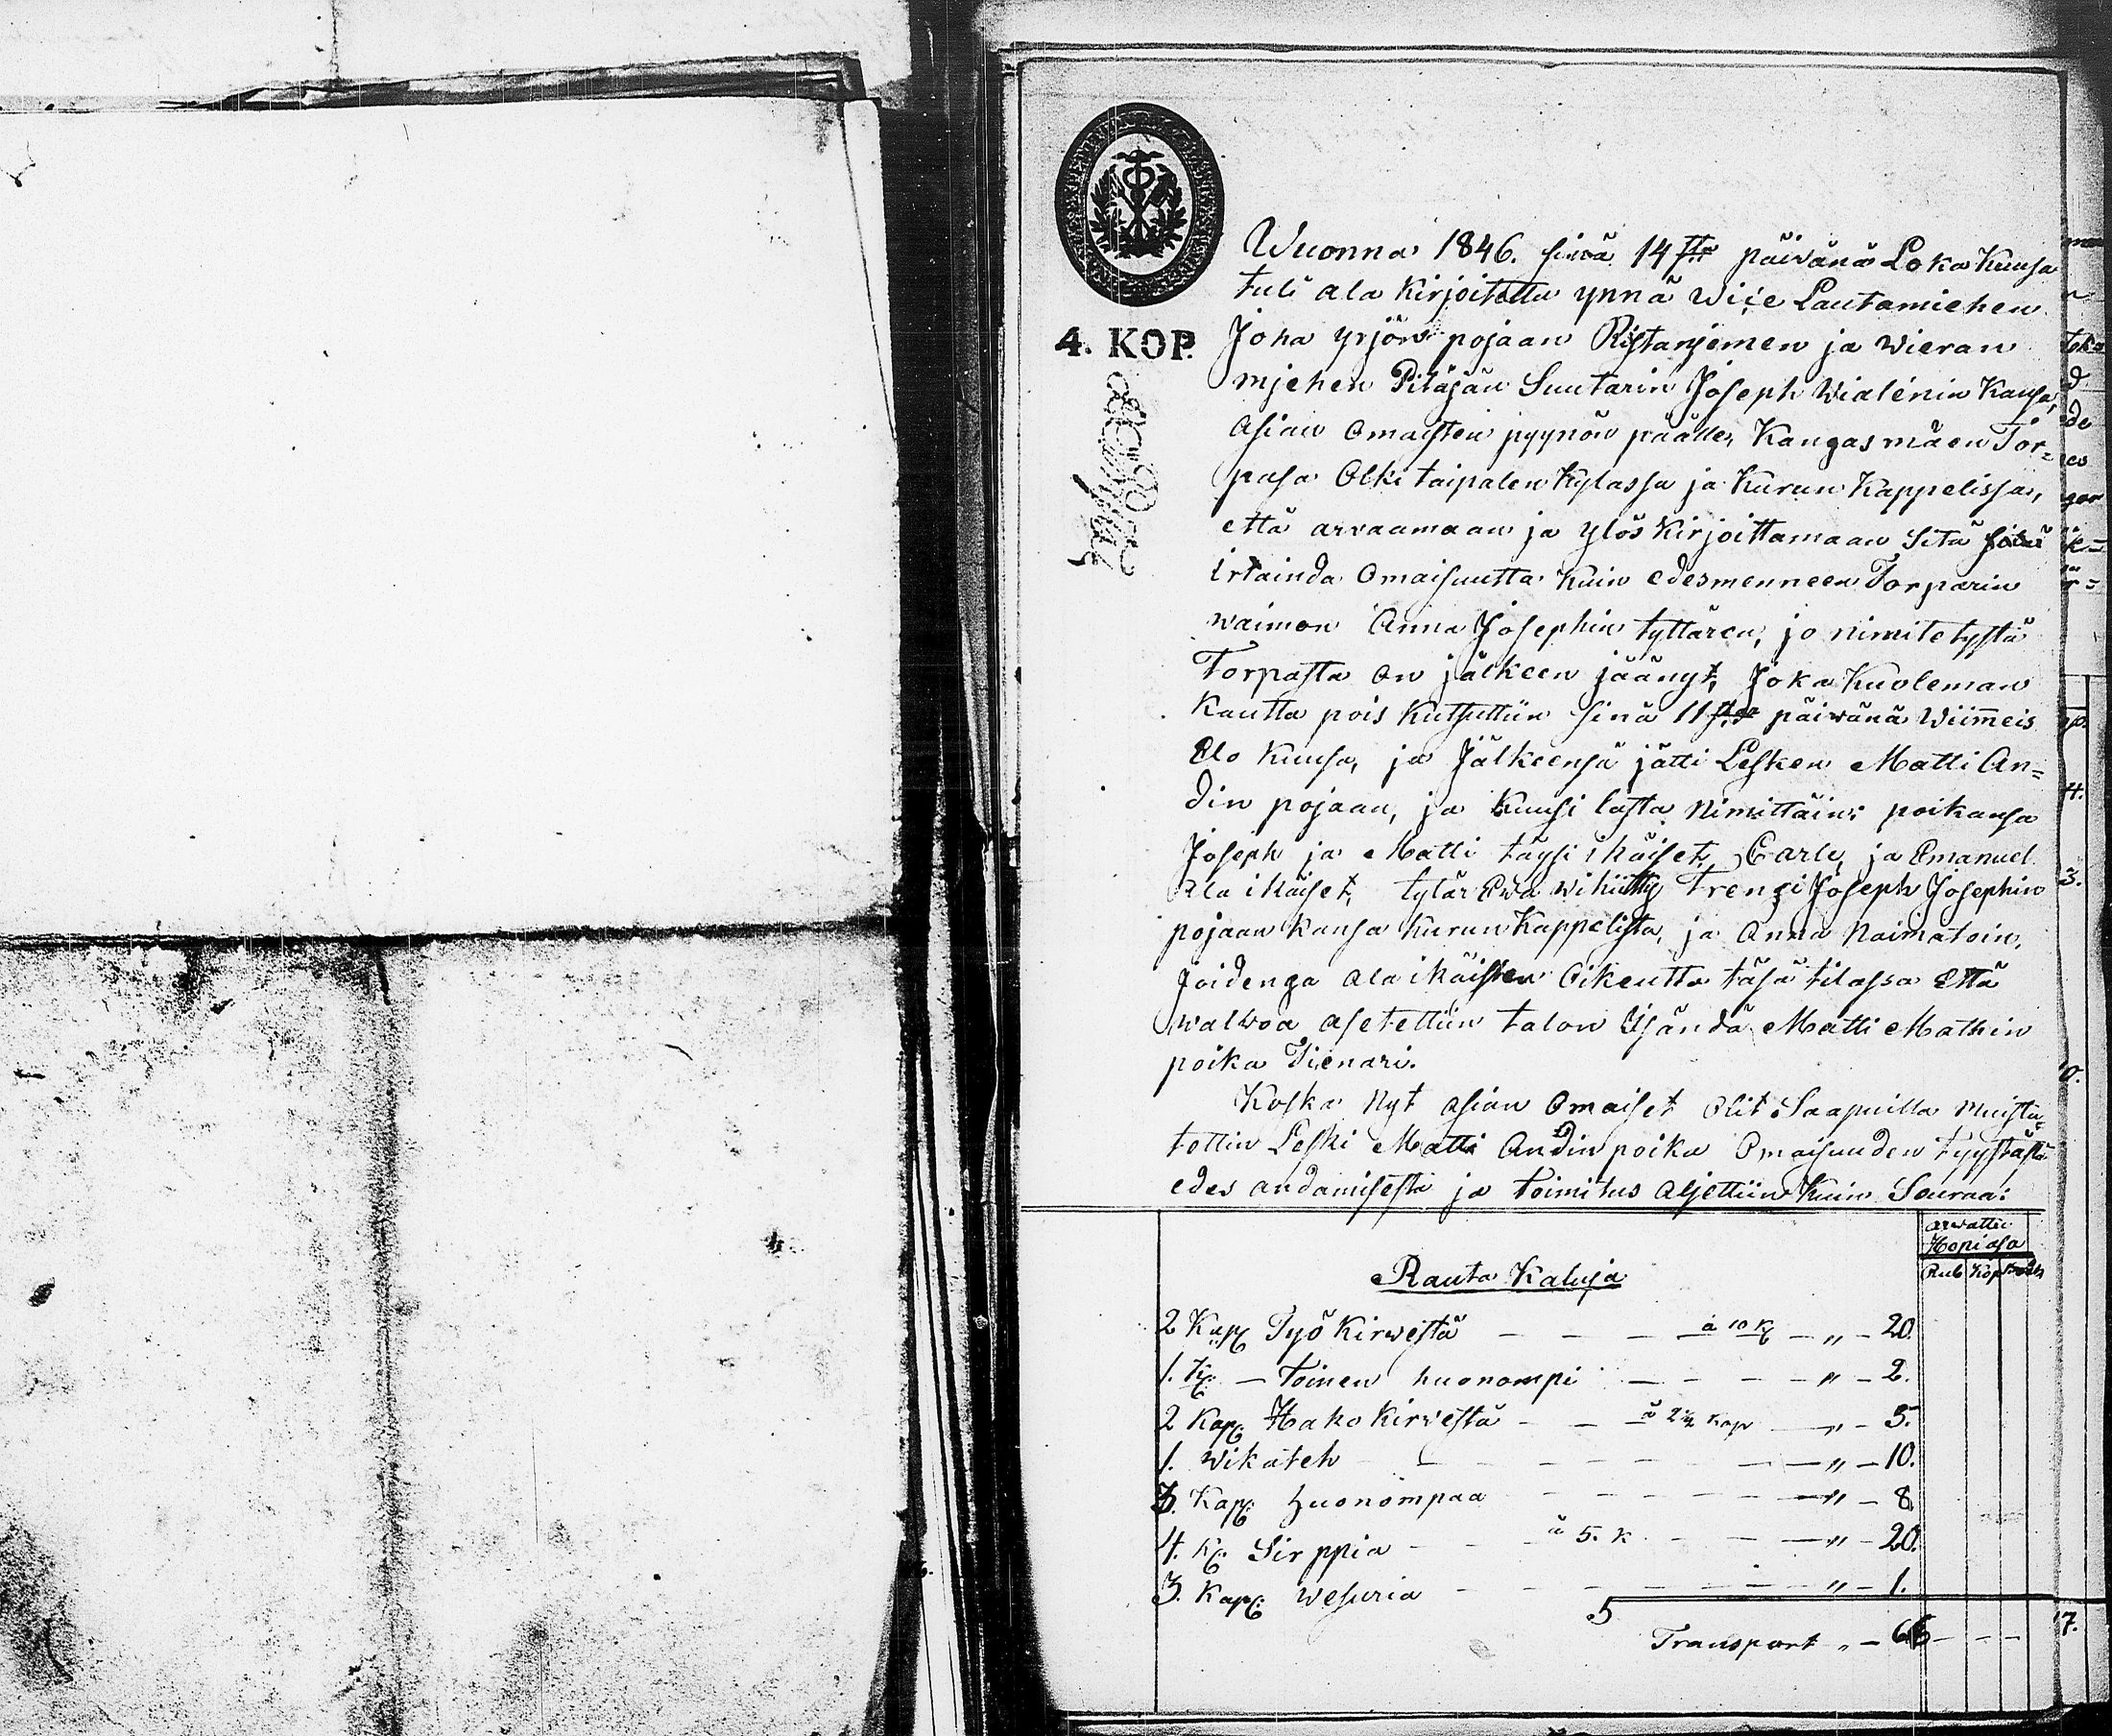 Wuonna 1846. sinä 14sta päivänä Loka Kuusa
tuli ala kirjoitettu ynnä Wice Lautamiehen
4. KOP.
Joha yrjön pojaan Ristanjemen ja Wieran
mjehen Pitäjän Suutarin Joseph Wialenin Kansa,
asian Omaisten pyynön päälle, Kangasmäen Tor=
pasa Olkitaipalen Kylassa ja Kurun Kappelissa,
että arvaamaan ja ylös kirjoittamaan Sitä
irtainda Omaisuutta kuin edesmenneen Torparin
waimon Anna Josephin tyttären, jo nimitetystä
Torpasta on jälkeen jäänyt, Joka Kuoleman
Kautta pois kutsuttiin sinä 11sta päivänä Wiimeis
Elo Kuusa, ja Jälkeensä jätti Lesken Matti An=
din pojaan, ja kuusi lasta Nimittäin: poikansa
Joseph ja Matti täysi ikäiset, Carle, ja Emanuel
Ala ikäiset, tytär Ewa wihitty Trengi Joseph Josephin
pojaan kansa Kurun Kappelista, ja Anna Naimatoin,
Joidenga ala ikäisten Oikeutta täsä tilassa Että
walwoa asetettiin talon Isändä Matti Mathin
poika Tienari.
Koska Nyt asian Omaiset olit Saapuilla muistu=
tettin Leski Matti Andin poika Omaisuuden tyystästä
edes andamisesta ja toimitus aljettiin kuin Seuraa:
arwattu
Hopiasa
Rub Kop
Rauta Kaluja
2 Kap: Työ Kirwestä — — — à 10 K — „ — 20.
1. K: — toinen huonompi — — — — „ — 2.
2 Kap: Hako Kirvestä — — à 2½ Kop — „ — 5.
1. Wikateh — — — — — — „ — 10.
3. Kap: huonompaa — — — — — — „ — 8.
4. K: Sirppia — — à 5. K — — — „ — 20.
3. Kap: Wesuria — — — — — — „ — 1.
Transport „ — 66 — — —